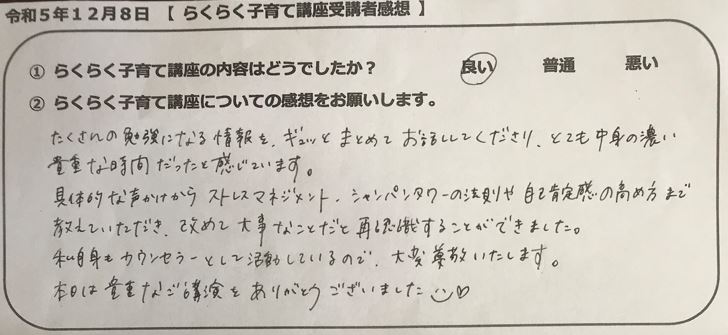 令和5年12月8日 【 らくらく子育て講座受講者感想 】
① らくらく子育て講座の内容はどうでしたか？ 良い 普通 悪い
② らくらく子育て講座についての感想をお願いします。
たくさんの勉強になる情報を、ギュッとまとめてお話ししてくださり、とても中身の濃い
貴重な時間だったと感じています。
具体的な声かけからストレスマネジメント、シャンパンタワーの法則や自己肯定感の高め方まで
教えていただき、改めて大事なことだと再認識することができました。
私自身もカウンセラーとして活動しているので、大変尊敬いたします。
本日は貴重なご講演をありがとうございました